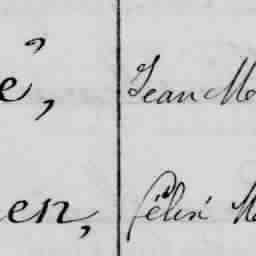 e, Jean M
en, Félix M